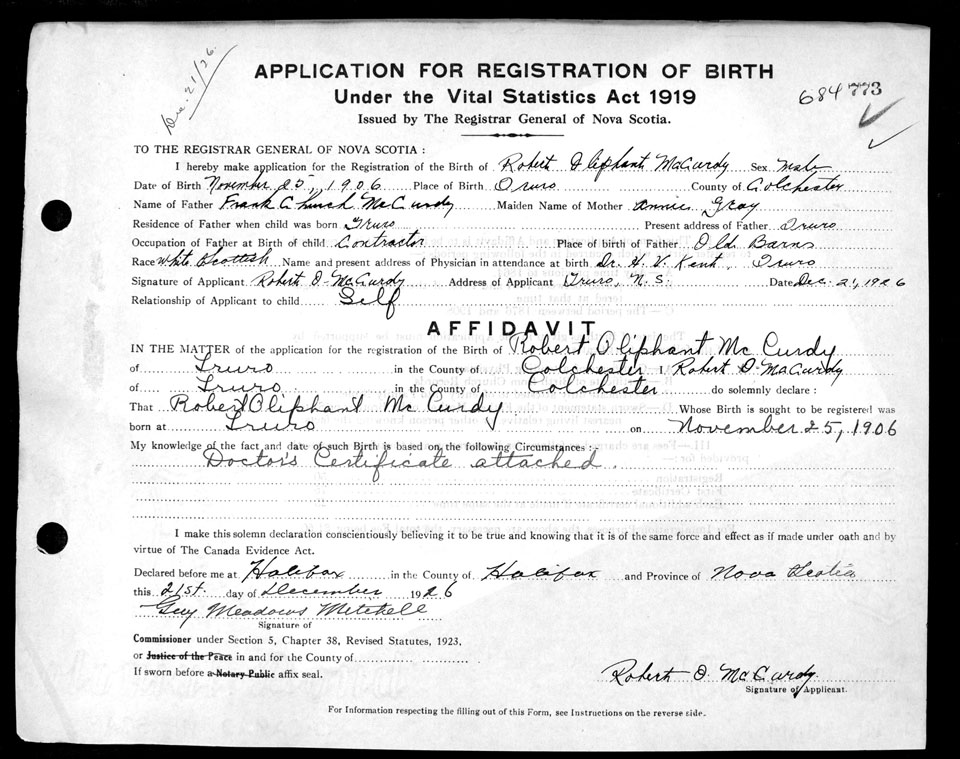 Dec. 21/26.
684 773
APPLICATION FOR REGISTRATION OF BIRTH
Under the Vital Statistics Act 1919
Issued by The Registrar General of Nova Scotia.
TO THE REGISTRAR GENERAL OF NOVA SCOTIA :
I hereby make application for the Registration of the Birth of Robert Oliphant McCurdy Sex Male
Date of Birth November 25, 1906 Place of Birth Truro County of Colchester
Name of Father Frank Church McCurdy Maiden Name of Mother Annie Gray
Residence of Father when child was born Truro Present address of Father Truro
Occupation of Father at Birth of child Contractor Place of Birth of Father Old Barns
Race White Scottish Name and present address of Physician in attendance at birth Dr. H. V. Kent, Truro
Signature of Applicant Robert O. McCurdy Address of Applicant Truro, N.S. Date Dec. 21, 1926
Relationship of Applicant to child Self
AFFIDAVIT
IN THE MATTER of the application for the registration of the Birth of Robert Oliphant McCurdy
of Truro in the County of Colchester I, Robert O. McCurdy
of Truro in the County of Colchester do solemnly declare :
That Robert Oliphant McCurdy Whose Birth is sought to be registered was
born at Truro on November 25, 1906
My knowledge of the fact and date of such Birth is based on the following Circumstances :
Doctor's Certificate attached.
I make this solemn declaration conscientiously believing it to be true and knowing that it is of the same force and effect as if made under oath and by
virtue of The Canada Evidence Act.
Declared before me at Halifax in the County of Halifax and Province of Nova Scotia
this 21st. day of December 1926
Guy Meadows Mitchell
Signature of
Commissioner under Section 5, Chapter 38, Revised Statutes, 1923.
or Justice of the Peace in and for the County of
If sworn before a Notary Public affix seal.
Robert O. McCurdy.
Signature of Applicant.
For Information respecting the filling out of this Form, see Instructions on the reverse side.